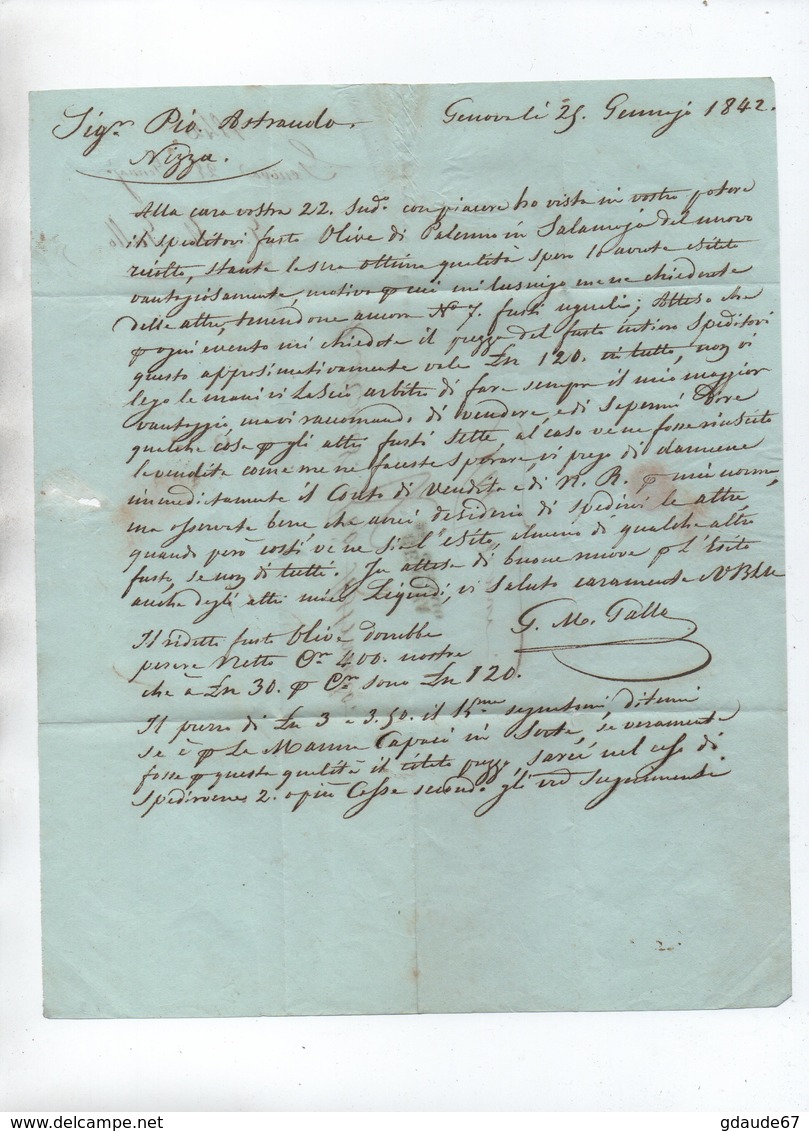 Sigr. Pio Astraudo.
Genova li 25. Gennajo 1842.
Nizza.
Alla cara vostra 22. Sudo. con piacere ho vista in vostro potere
il speditovi fusto Olive di Palermo in Salamoja del nuovo
ricolto, stante la sua ottima qualità spero lo avrete esitto
vantagiosamente, motivo p cui mi lusingo me ne chiederete
delle altre, tenendone ancora No 7. fusti uguali; Atteso che
p ogni evento mi chiedete il prezzo del fusto intiero speditovi
questo approssimativamente vale Ln 120. in tutto, non vi
lego le mani vi lascio arbitro di fare sempre il mio maggior
vantaggio, ma vi raccomando di vendere, e di sapermi dire
qualche cosa p gli altri fusti sette, al caso ve ne fosse riuscito
la vendita come me ne faceste sperare, vi prego di darmene
immediatamente il Conto di Vendita e di N. R. p mia norma,
ma osservate bene che avrei desiderio di spedirvi le altre,
quando però costì ve ne sia l'esito, almeno di qualche altro
fusto, se non di tutti. In attesa di buone nuove p l'esito
anche degli altri miei Liquidi, vi saluto caramente
G. M. Gallo
Il ridetto fusto Olive dovrebbe
pesare Netto Cr 400. nostre
che à Ln 30. p Cr sono Ln 120.
Il prezzo di Ln 3 a 3.50. il 15me segnatomi ditemi
se è p Le Manne Capaci in Sorte, se veramente
fosse p questa qualità il citato prezzo, sarei nel caso di
spedirvene 2. o più Casse secondo gli
gdaude67